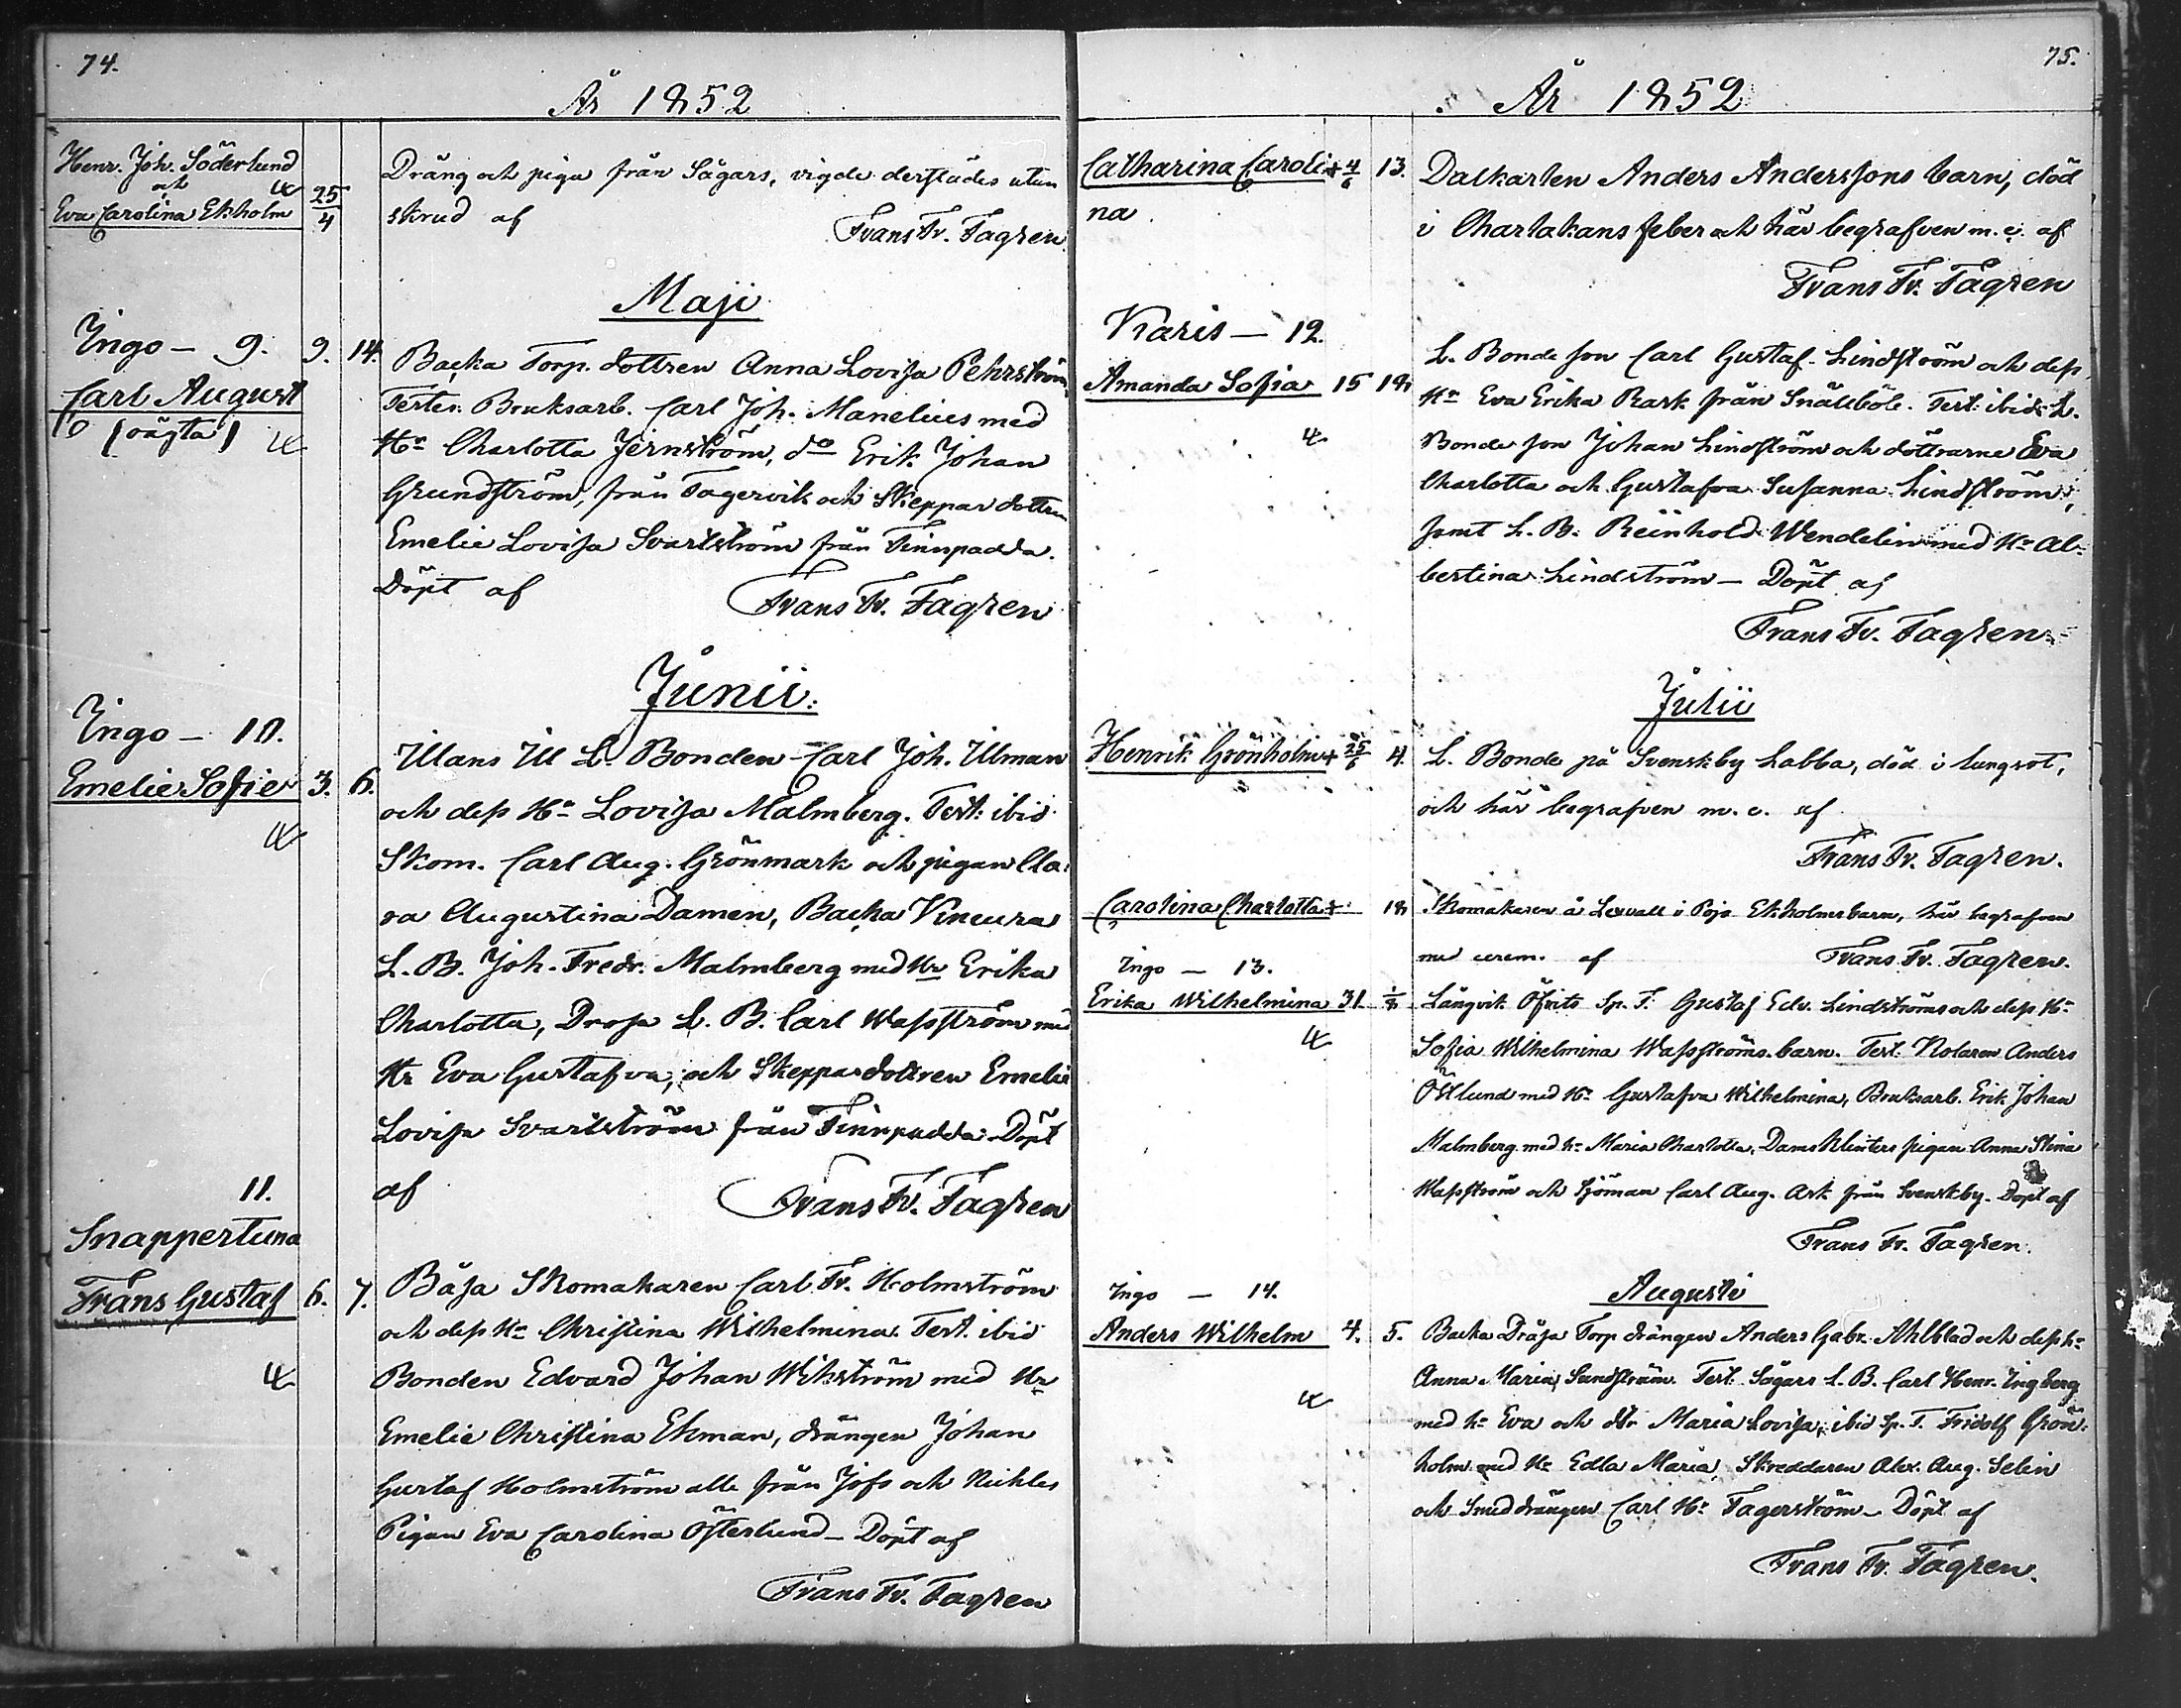 74.
År 1852
Henr. Joh. Söderlund
och
Eva Carolina Ekholm
25/4
Dräng och piga från Sågars, vigde derstädes utan
skrud af
Frans Fr. Fagren
Maji
Ingo - 9.
Carl August
(oägta)
9. 14.
Backa Torp. dottren Anna Lovisa Pehrström
Testes. Bruksarb. Carl Joh. Manelius med
Hu Charlotta Jernström, do Erik Johan
Grundström, från Fagervik och Skeppar dottren
Emelie Lovisa Svartström från Finnpadda.
Döpt af
Frans Fr. Fagren
Junii.
Ingo - 10.
Emelie Sofie
3. 6.
Illans Ill L. Bonden Carl Joh. Illman
och dess Hu Lovisa Malmberg. Test: ibid
Skom. Carl Aug. Grönmark och pigan Cla-
ra Augustina Damen, Backa
L. B. Joh. Fredr. Malmberg med Hu Erika
Charlotta, L. B. Carl Wassström med
Hu Eva Gustafva, och Skeppardottren Emelie
Lovisa Svartström från Finnpadda. Döpt
af
Frans Fr. Fagren
11.
Snappertuna
Frans Gustaf
6. 7.
Båsa Skomakaren Carl Fr. Holmström
och dess Hu Christina Wilhelmina. Test. ibid
Bonden Edvard Johan Wikström med Hu
Emelie Christina Ekman, drängen Johan
Gustaf Holmström alla från och
Pigan Eva Carolina Österlund - Döpt af
Frans Fr. Fagren
75.
År 1852
Catharina Caroli-
na
+ 4/6 13.
Dalkarlen Anders Anderssons barn, död
i Charlakans feber och här begrafven m. c. af
Frans Fr. Fagren
Karis - 12.
Amanda Sofia 15 18
L. Bonde son Carl Gustaf Lindström och dess
Hu Eva Erika Rask från Snålböle. Test: ibid: L.
Bonde son Johan Lindström och döttrarne Eva
Charlotta och Gustafva Susanna Lindström,
samt L. B. Reinhold Wendelin med Hu Al-
bertina Lindström - Döpt af
Frans Fr. Fagren
Julii
Henrik Grönholm + 25/6 4.
L. Bonde på Svenskby Labba, död i lungsot,
och här begrafven m. c. af
Frans Fr. Fagren.
Carolina Charlotta + 18
Skomakaren å Lexvall i Pojo Ekholms barn, här begrafven
med cerem. af
Frans Fr. Fagren.
Ingo - 13.
Erika Wilhelmina 31 1/8
Långvik Öfvits Sp. T. Gustaf Edv. Lindströms och dess Hu
Sofia Wilhelmina Wassströms barn. Test: Anders
Östlund med Hu Gustafva Wilhelmina, Bruksarb. Erik Johan
Malmberg med hu Maria Charlotta, Dams Klinters pigan Anna Stina
Wassström och Sjöman Carl Aug. Ask från Svenskby. Döpt af
Frans Fr. Fagren.
Augusti
Ingo - 14.
Anders Wilhelm 4. 5.
Backa Dråsa Torp drängen Anders Gabr. Ahlblad och dess hu
Anna Maria Sandström. Test: Sågars L. B. Carl Henr. Ingberg
med hu Eva och dtr Maria Lovisa, ibid Sp. T. Fridolf Grön-
holm med Hu Edla Maria, Skreddaren Alex. Aug. Selin
och Smeddrängen Carl Hr Fagerström - Döpt af
Frans Fr. Fagren.